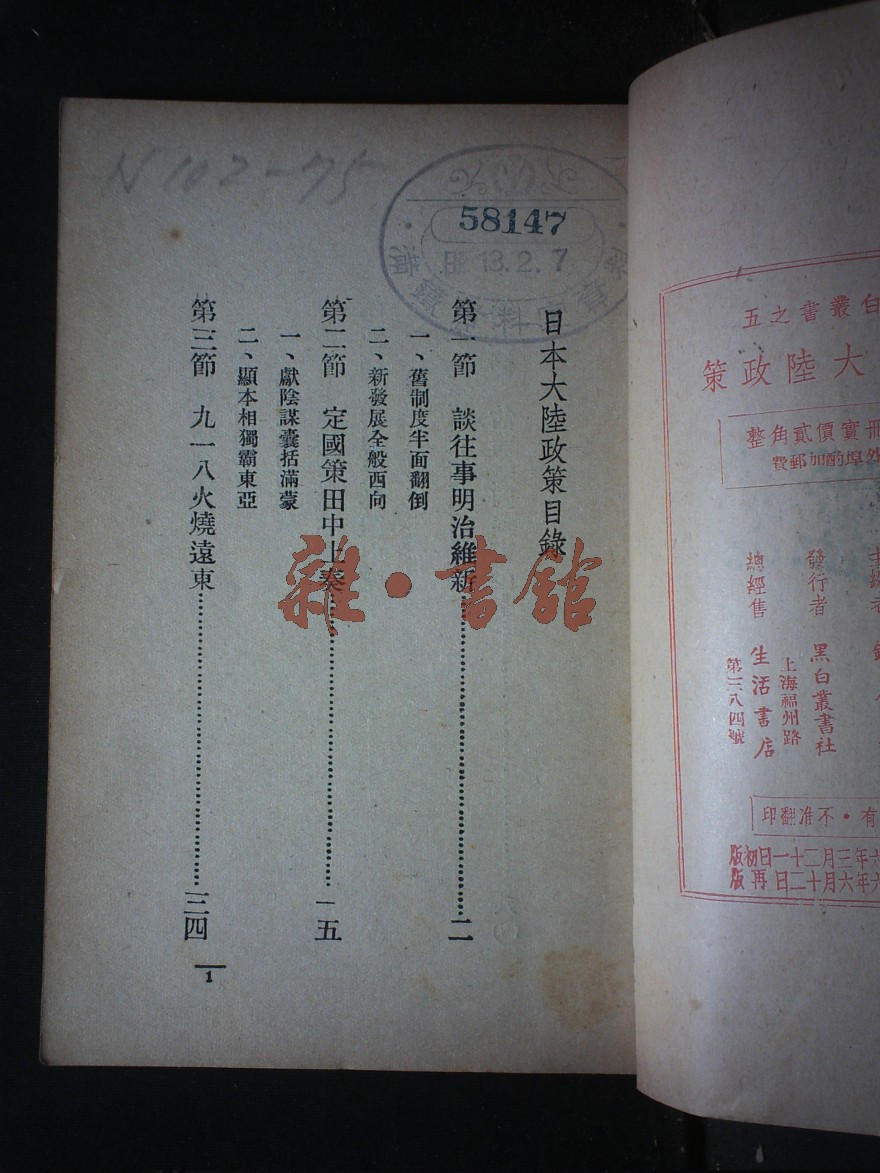 日本大陸政策目錄
第一節　談往事明治維新……………二
一、舊制度半面翻倒
二、新發展全般西向
第二節　定國策田中上奏……………一五
一、獻陰謀囊括滿蒙
二、顯本相獨霸東亞
第三節　九一八火燒遠東……………三四
1
N102-75
58147
13.2.7
雜·書館
白叢書之五
大陸政策
冊實價貳角整
外埠酌加郵費
發行者　黑白叢書社
上海福州路
總經售　生活書店
第三八四號
有·不准翻印
六年三月二十一日初版
六年六月十二日再版